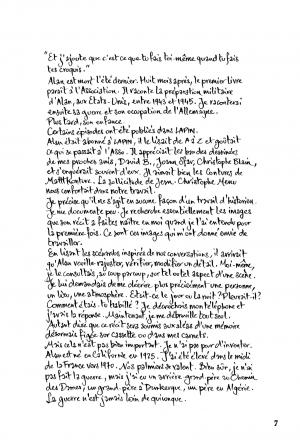 "Et j'ajoute que c'est ce que tu fais toi-même quand tu fais
tes croquis."
Alan est mort l'été dernier. Huit mois après, le premier livre
paraît à l'Association. Il raconte la préparation militaire
d'Alan, aux États-Unis, entre 1943 et 1945. Je raconterai
ensuite sa guerre et son occupation de l'Allemagne.
Plus tard, son enfance.
Certains épisodes ont été publiés dans LAPIN.
Alan était abonné à LAPIN, il le lisait de A à Z et goûtait
ce qui se passait à l'Asso. Il appréciait les bandes dessinées
de mes proches amis, David B., Joann Sfar, Christophe Blain,
et s'enquérait souvent d'eux. Il aimait bien les Contures de
Matt Konture. La sollicitude de Jean-Christophe Menu
nous confortait dans notre travail.
Je précise qu'il ne s'agit en aucune façon d'un travail d'historien.
Je me documente peu. Je recherche essentiellement les images
que son récit a faites naître en moi quand je l'ai entendu pour
la première fois. Ce sont ces images qui m'ont donné envie de
travailler.
En lisant les scénarios inspirés de nos conversations, il arrivait
qu'Alan veuille rajouter, vérifier, modifier un détail. Moi-même,
je le consultais, au coup par coup, sur tel ou tel aspect d'une scène.
Je lui demandais de me décrire plus précisément une personne,
un lieu, une atmosphère. Était-ce le jour ou la nuit? Pleuvait-il?
Comment étais-tu habillé? Je décrochais mon téléphone et
j'avais la réponse. Maintenant, je me débrouille tout seul.
Autant dire que ce récit sera soumis aux aléas d'une mémoire
désormais figée sur cassette ou dans mes carnets.
Mais cela n'est pas bien important. Je n'ai pas peur d'inventer.
Alan est né en Californie en 1925. J'ai été élevé dans le midi
de la France vers 1970. Nos palmiers se valent. Bien sûr, je n'ai
pas fait la guerre, mais j'ai eu un arrière-grand-père au Chemin
des Dames, un grand-père à Dunkerque, un père en Algérie.
La guerre n'est jamais loin de quiconque.
7